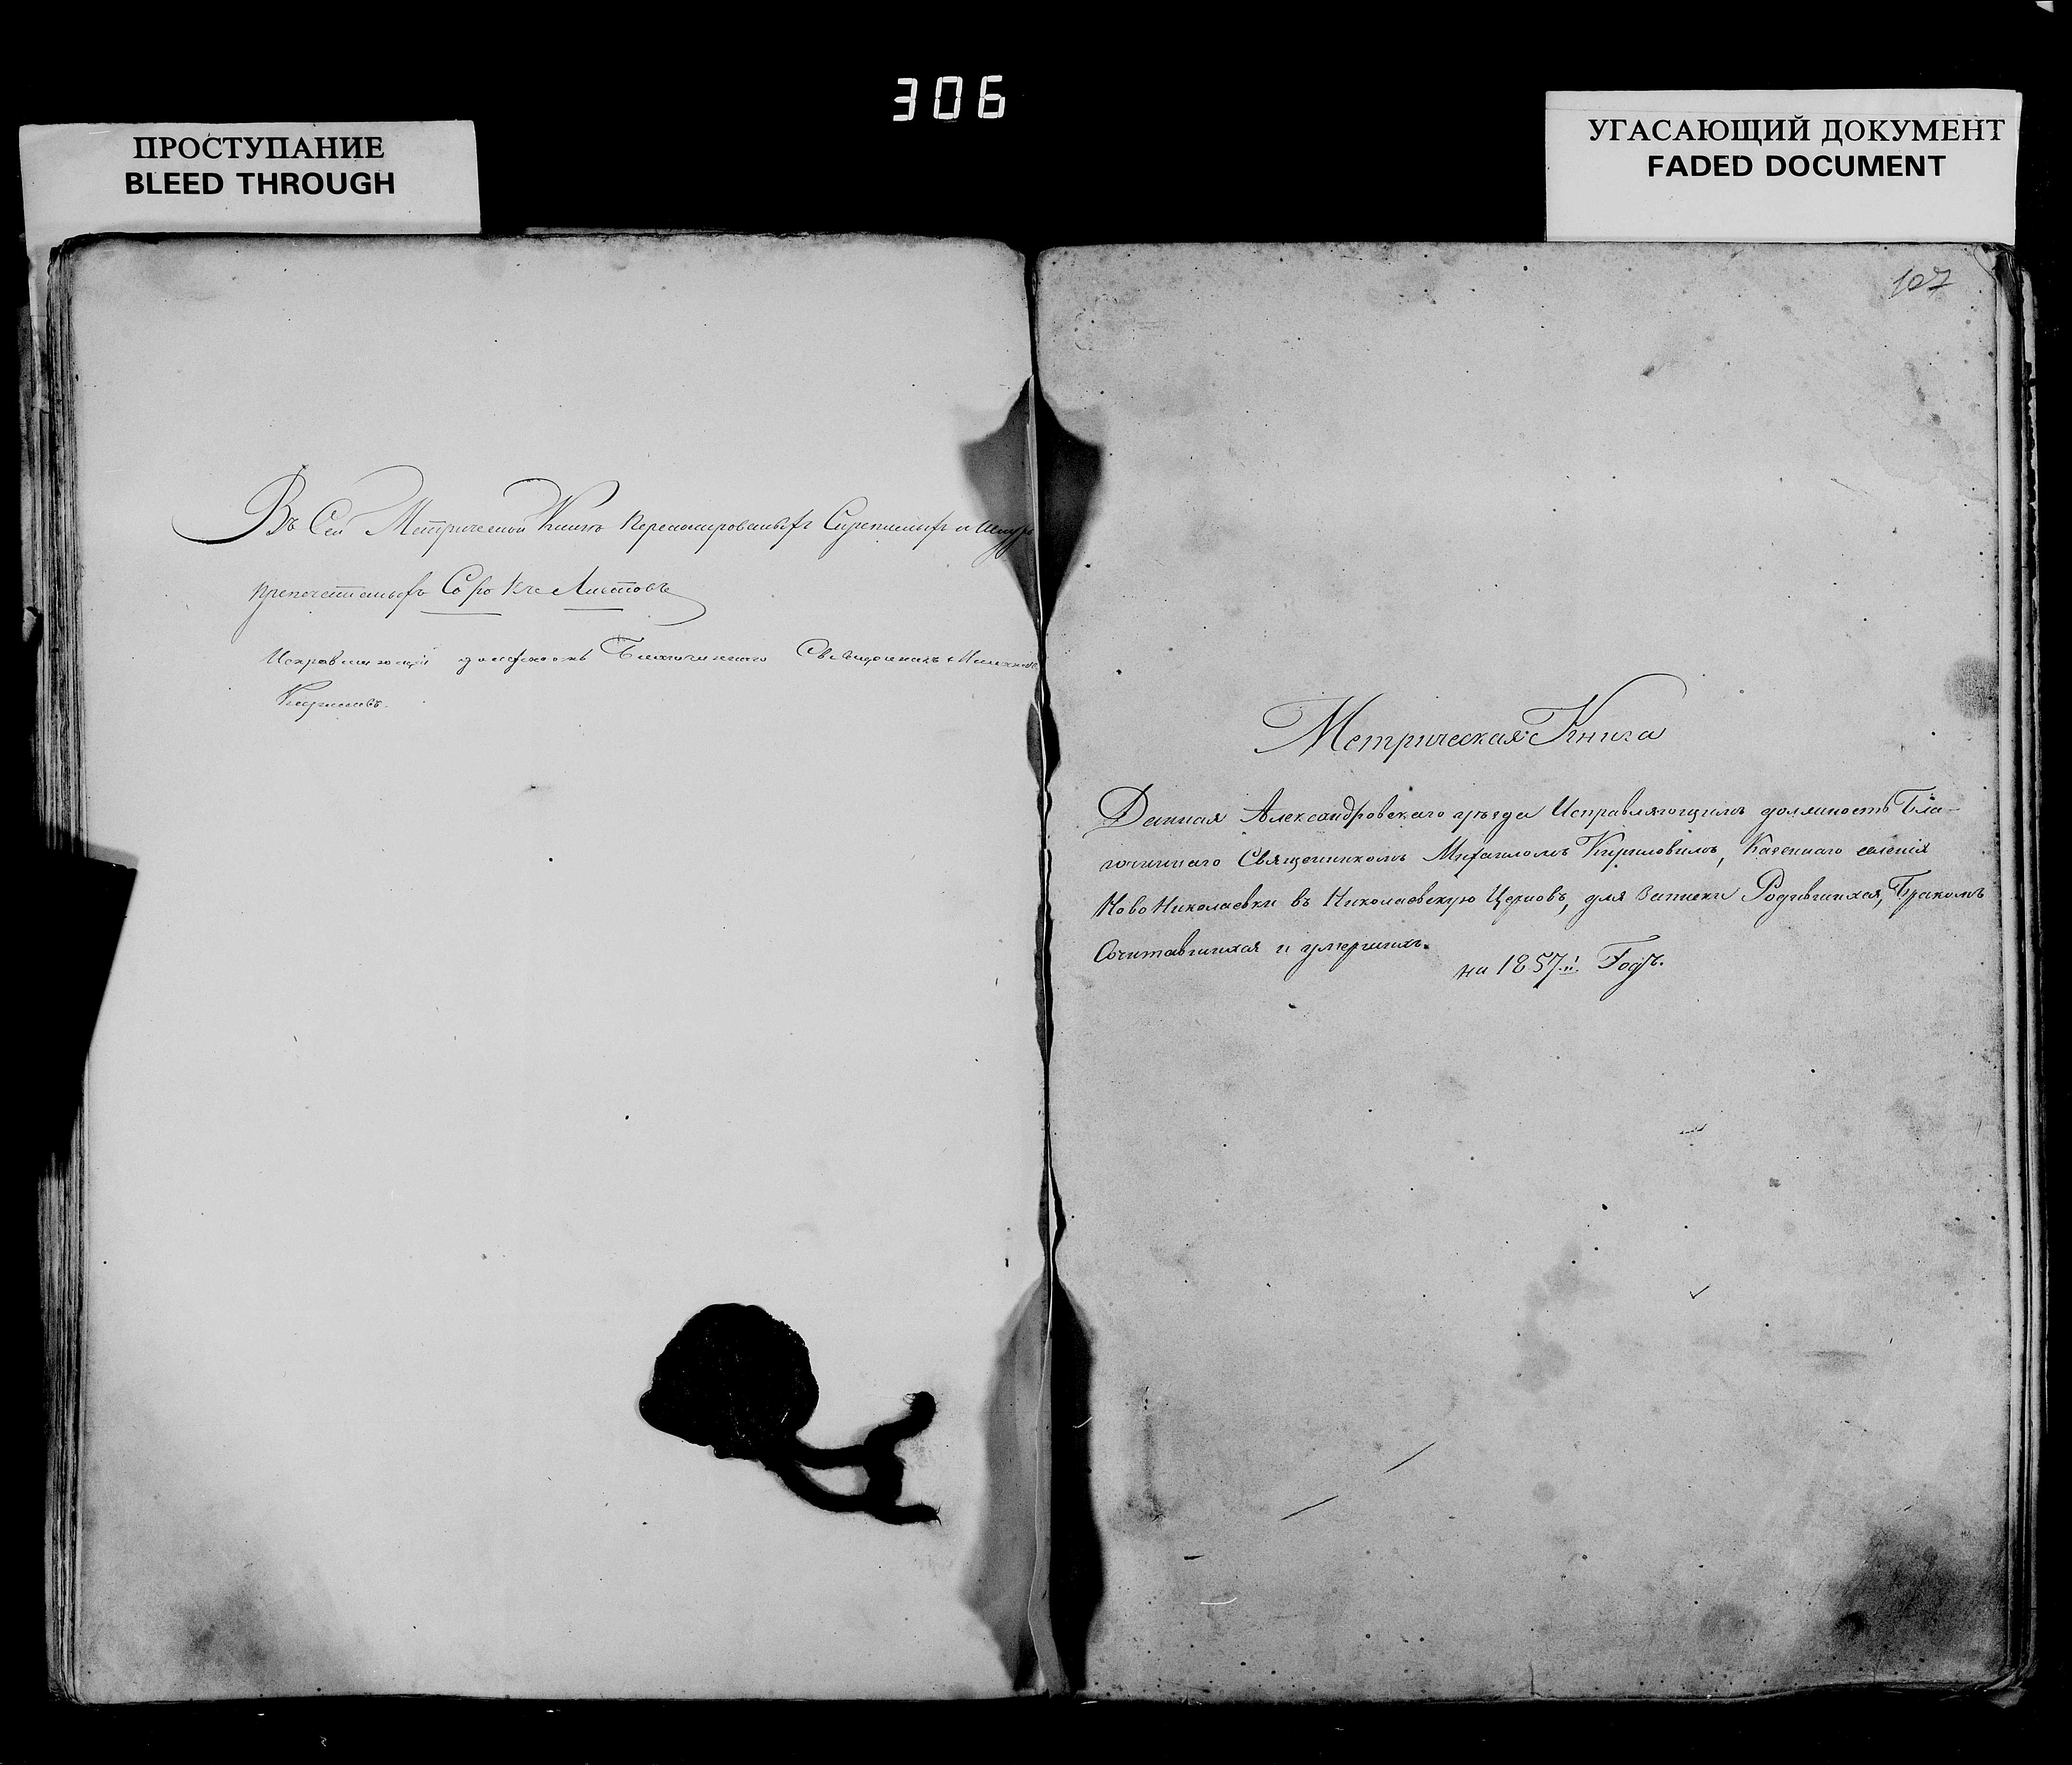 306
ПРОСТУПАНИЕ
BLEED THROUGH
УГАСАЮЩИЙ ДОКУМЕНТ
FADED DOCUMENT
Въ Сей Метрической Книгѣ Переномерованыхъ Скрепленыхъ и
Припечатаныхъ Сорокъ Листовъ
Исправляющій должность Благочиннаго Священникъ Михаилъ
Кириловъ.
107
Метрическая Книга
Данная Александровскаго уѣзда Исправляющимъ должность Бла-
гочиннаго Священникомъ Михаиломъ Кириловымъ, Казеннаго селенія
Ново Николаевки въ Николаевскую Церковь, для Записки Родившихся, Бракомъ
Сочитавшихся и умершихъ.
на 1857.й. Годъ.